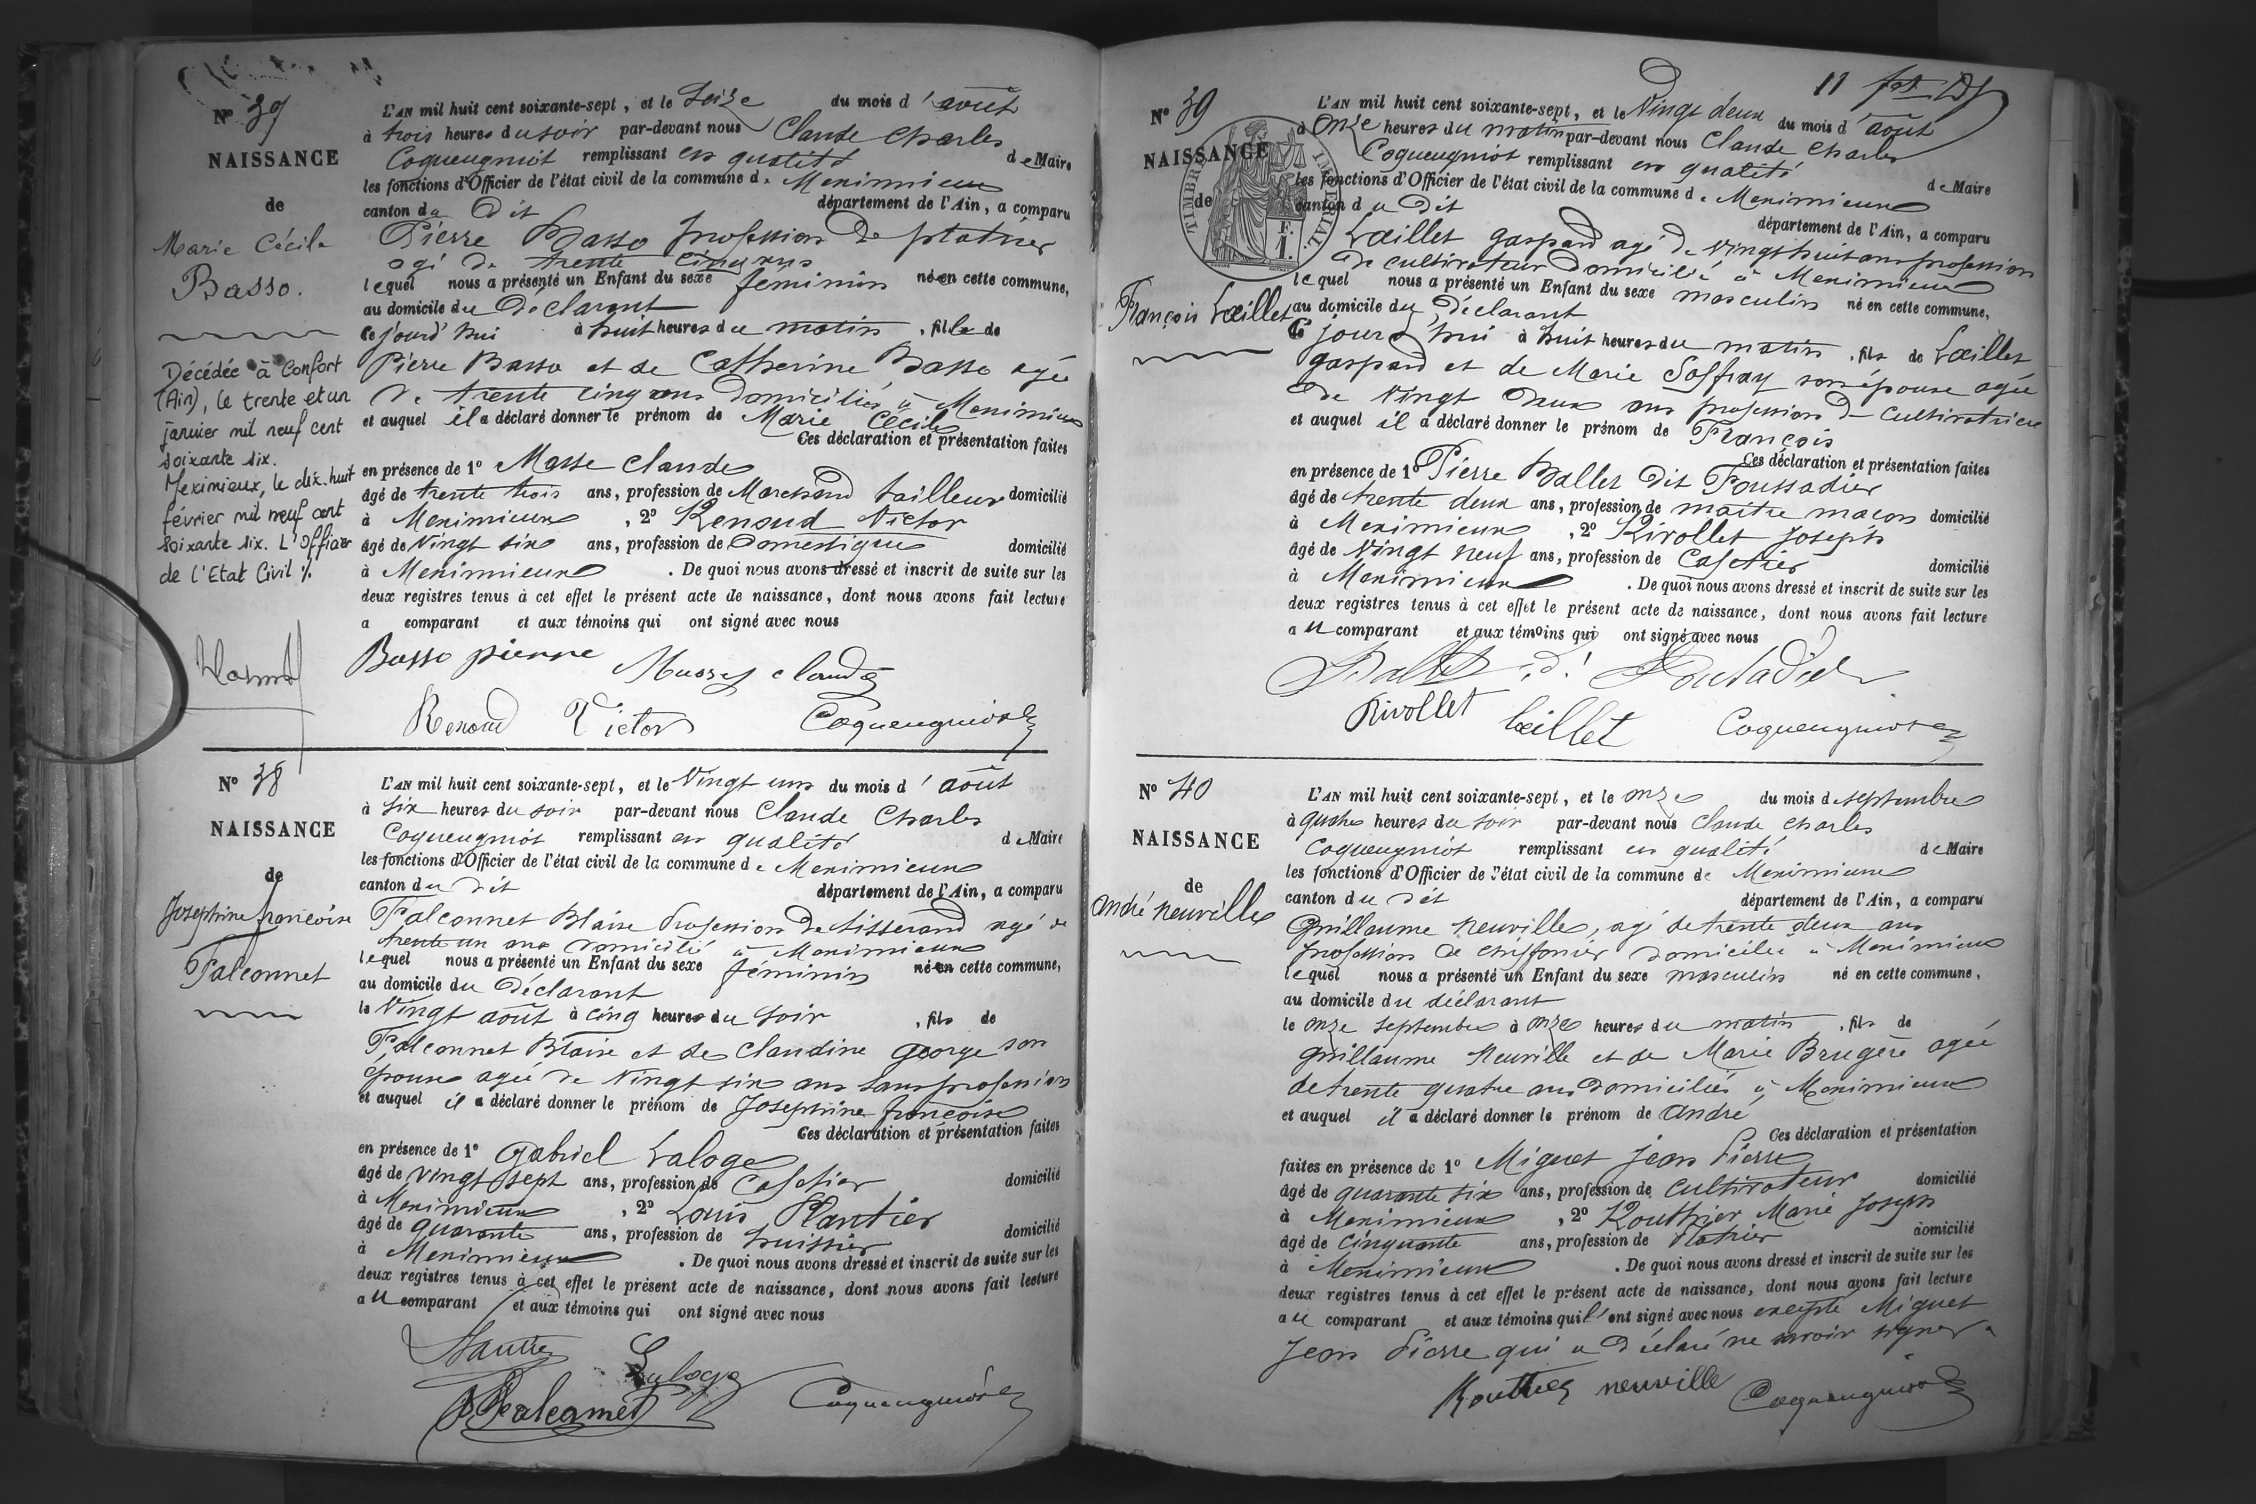 Nº 37
NAISSANCE
de
Marie Cécile
Basso.
Décédée à Confort
(Ain), le trente et un
janvier mil neuf cent
soixante six.
Meximieux, le dix-huit
février mil neuf cent
soixante six. L'Officier
de l'Etat Civil %.
L'AN mil huit cent soixante-sept, et le Seize du mois d'août
à trois heures du soir par-devant nous Claude Charles
Coqueugniot remplissant en qualité de Maire
les fonctions d'Officier de l'état civil de la commune de Meximieux
canton du dit département de l'Ain, a comparu
Pierre Basso profession de platrier
agé de trente cinq ans
lequel nous a présenté un Enfant du sexe féminin né en cette commune,
au domicile du déclarant
Ce jourd'hui à huit heures du matin, fille de
Pierre Basso et de Catherine Basso agée
de trente cinq ans domiciliés à Meximieux
et auquel il a déclaré donner le prénom de Marie Cécile
Ces déclaration et présentation faites
en présence de 1º Masse Claude
âgé de trente trois ans, profession de Marchand tailleur domicilié
à Meximieux, 2º Renoud Victor
âgé de Vingt six ans, profession de Domestique domicilié
à Meximieux. De quoi nous avons dressé et inscrit de suite sur les
deux registres tenus à cet effet le présent acte de naissance, dont nous avons fait lecture
a comparant et aux témoins qui ont signé avec nous
Basso pierre Masse claude
Renoud Victor Coqueugniot
Nº 38
NAISSANCE
de
Josephine françoise
Falconnet
L'AN mil huit cent soixante-sept, et le Vingt un du mois d'août
à six heures du soir par-devant nous Claude Charles
Coqueugniot remplissant en qualité de Maire
les fonctions d'Officier de l'état civil de la commune de Meximieux
canton du dit département de l'Ain, a comparu
Falconnet Blaise Profession de tisserand agé de
trente un ans domicilié à Meximieux
lequel nous a présenté un Enfant du sexe féminin né en cette commune,
au domicile du déclarant
le Vingt août à cinq heures du soir, fils de
Falconnet Blaise et de Claudine George son
épouse agée de Vingt six ans sans profession
et auquel il a déclaré donner le prénom de Josephine françoise
Ces déclaration et présentation faites
en présence de 1º Gabriel Laloge
âgé de vingt sept ans, profession de Cafetier domicilié
à Meximieux, 2º Louis Plantier
âgé de quarante ans, profession de huissier domicilié
à Meximieux. De quoi nous avons dressé et inscrit de suite sur les
deux registres tenus à cet effet le présent acte de naissance, dont nous avons fait lecture
au comparant et aux témoins qui ont signé avec nous
Laloge
Falconnet Coqueugniot
11
Nº 39
NAISSANCE
de
TIMBRE IMPERIAL
F.
1.
François Lœillet
L'AN mil huit cent soixante-sept, et le Vingt deux du mois d'août
à onze heures du matin par-devant nous Claude Charles
Coqueugniot remplissant en qualité de Maire
les fonctions d'Officier de l'état civil de la commune de Meximieux
canton du dit département de l'Ain, a comparu
Lœillet gaspard agé de Vingt huit ans profession
de cultivateur domicilié à Meximieux
lequel nous a présenté un Enfant du sexe masculin né en cette commune,
au domicile du déclarant
Ce jourd'hui à huit heures du matin, fils de Lœillet
gaspard et de Marie Soffray son épouse agée
de Vingt deux ans profession de cultivatrice
et auquel il a déclaré donner le prénom de François
Ces déclaration et présentation faites
en présence de 1º Pierre Ballet dit Poussadier
âgé de trente deux ans, profession de maitre maçon domicilié
à Meximieux, 2º Rivollet Joseph
âgé de Vingt neuf ans, profession de Cafetier domicilié
à Meximieux. De quoi nous avons dressé et inscrit de suite sur les
deux registres tenus à cet effet le présent acte de naissance, dont nous avons fait lecture
au comparant et aux témoins qui ont signé avec nous
Rivollet lœillet Coqueugniot
Nº 40
NAISSANCE
de
André neuville
L'AN mil huit cent soixante-sept, et le onze du mois de septembre
à quatre heures du soir par-devant nous Claude Charles
Coqueugniot remplissant en qualité de Maire
les fonctions d'Officier de l'état civil de la commune de Meximieux
canton du dit département de l'Ain, a comparu
Guillaume neuville, agé de trente deux ans
profession de chiffonier domicilié à Meximieux
lequel nous a présenté un Enfant du sexe masculin né en cette commune,
au domicile du déclarant
le onze septembre à onze heures du matin, fils de
Guillaume Neuville et de Marie Brugère agée
de trente quatre ans domiciliés à Meximieux
et auquel il a déclaré donner le prénom de André
Ces déclaration et présentation
faites en présence de 1º Miguet Jean Pierre
âgé de quarante six ans, profession de cultivateur domicilié
à Meximieux, 2º Routhier Marie Joseph
âgé de cinquante ans, profession de Platrier domicilié
à Meximieux. De quoi nous avons dressé et inscrit de suite sur les
deux registres tenus à cet effet le présent acte de naissance, dont nous avons fait lecture
au comparant et aux témoins qui l'ont signé avec nous excepte Miguet
Jean Pierre qui a déclaré ne savoir signer.
Routhier neuville Coqueugniot